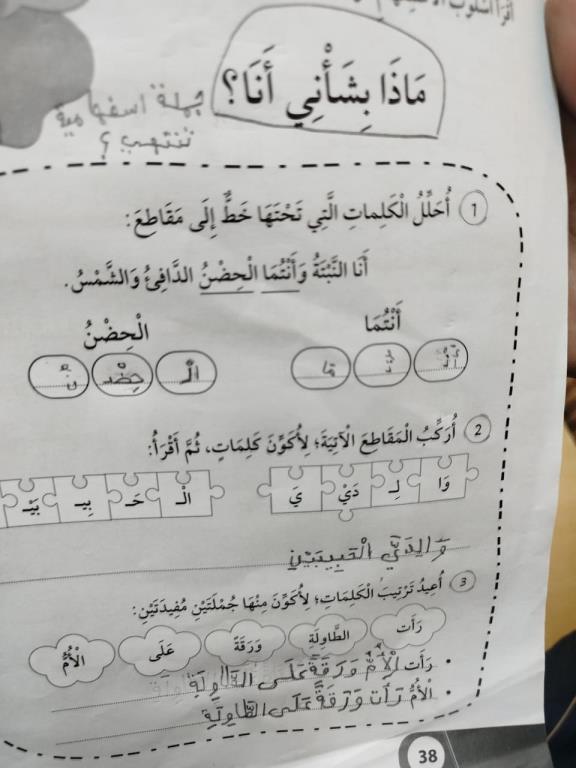 أَقْرَأُ أُسْلُوبَ
مَاذَا بِشَأْنِي أَنَا؟
1 أُحَلِّلُ الْكَلِمَاتِ الَّتِي تَحْتَهَا خَطٌّ إِلَى مَقَاطِعَ:
أَنَا النَّبْتَةُ وَأَنْتُمَا الْحِضْنُ الدَّافِئُ وَالشَّمْسُ.
أَنْتُمَا الْحِضْنُ
مَا الْـ حِضْـ نُ
2 أُرَكِّبُ الْمَقَاطِعَ الْآتِيَةَ؛ لِأُكَوِّنَ كَلِمَاتٍ، ثُمَّ أَقْرَأُ:
وَا لِـ دَيْ يَ الْـ حَـ بِيـ بَيْـ
وَالِدَيَّ الْحَبِيبَيْنِ
3 أُعِيدُ تَرْتِيبَ الْكَلِمَاتِ؛ لِأُكَوِّنَ مِنْهَا جُمْلَتَيْنِ مُفِيدَتَيْنِ:
رَأَت الطَّاوِلَةِ وَرَقَةً عَلَى الْأُمُّ
• رَأَت الْأُمُّ وَرَقَةً عَلَى الطَّاوِلَةِ
• الْأُمُّ رَأَت وَرَقَةً عَلَى الطَّاوِلَةِ
38